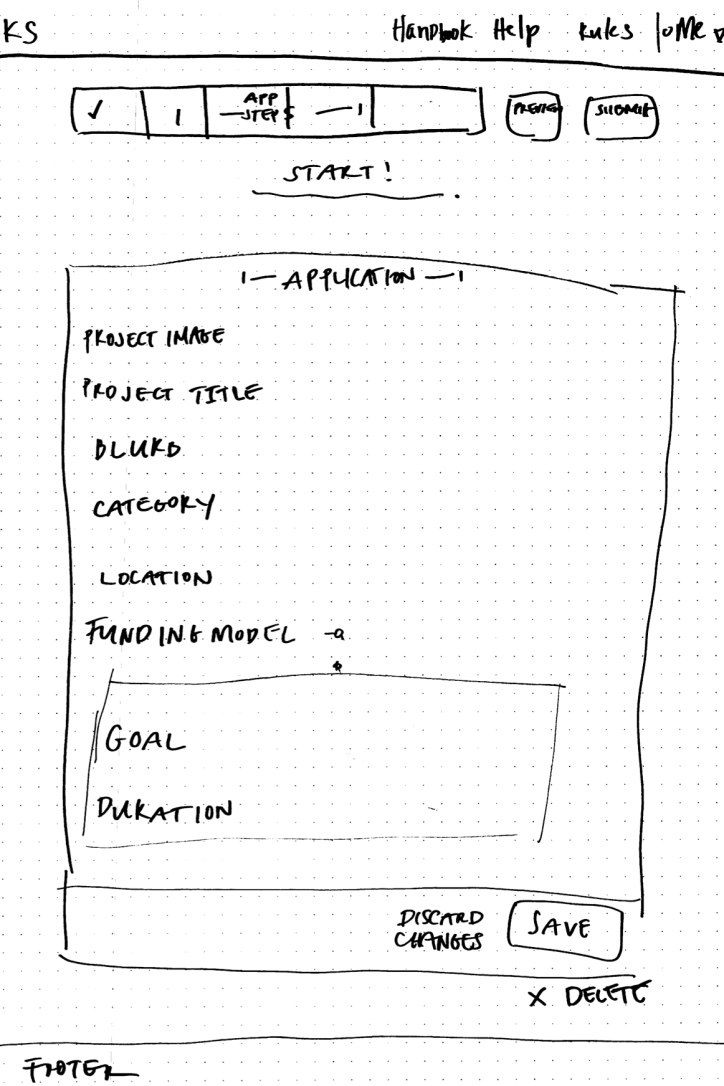 KS Handbook Help Rules |oMe
✓ | APP STEPS
PREVIEW SUBMIT
START!
APPLICATION
PROJECT IMAGE
PROJECT TITLE
BLURB
CATEGORY
LOCATION
FUNDING MODEL
GOAL
DURATION
DISCARD CHANGES
SAVE
X DELETE
FOOTER